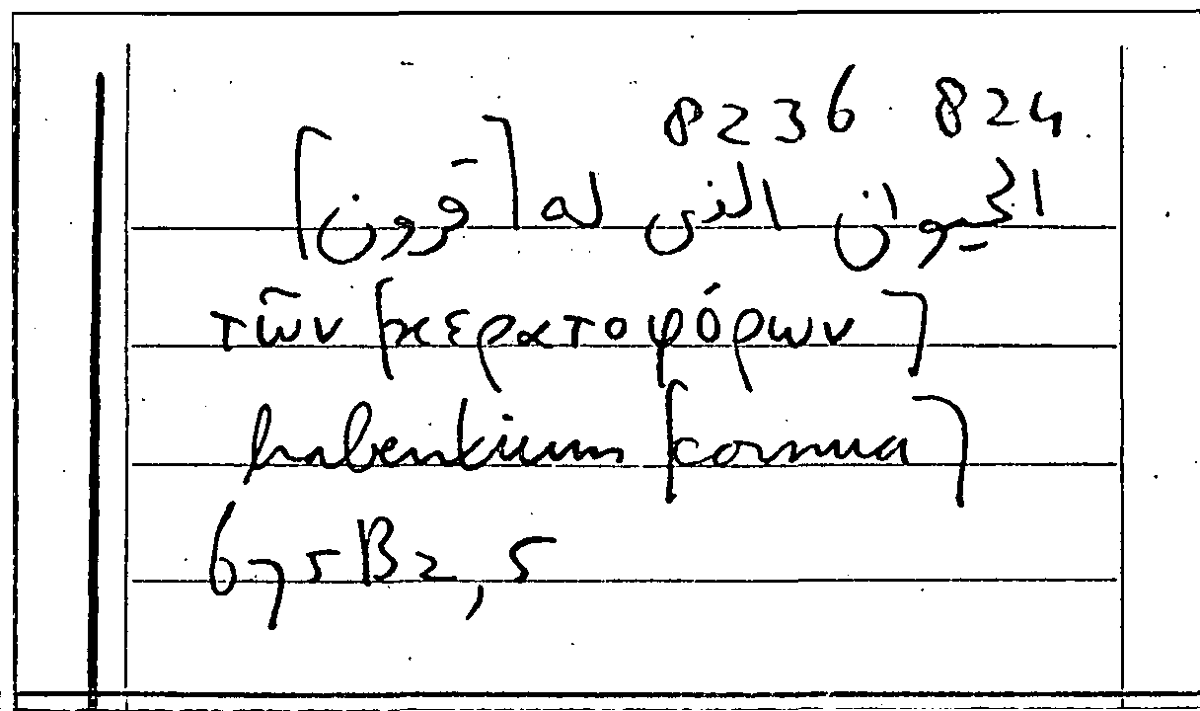 8236 824
الحيوان الذى له [قرون]
τῶν [κερατοφόρων]
habentium [cornua]
675B2,5